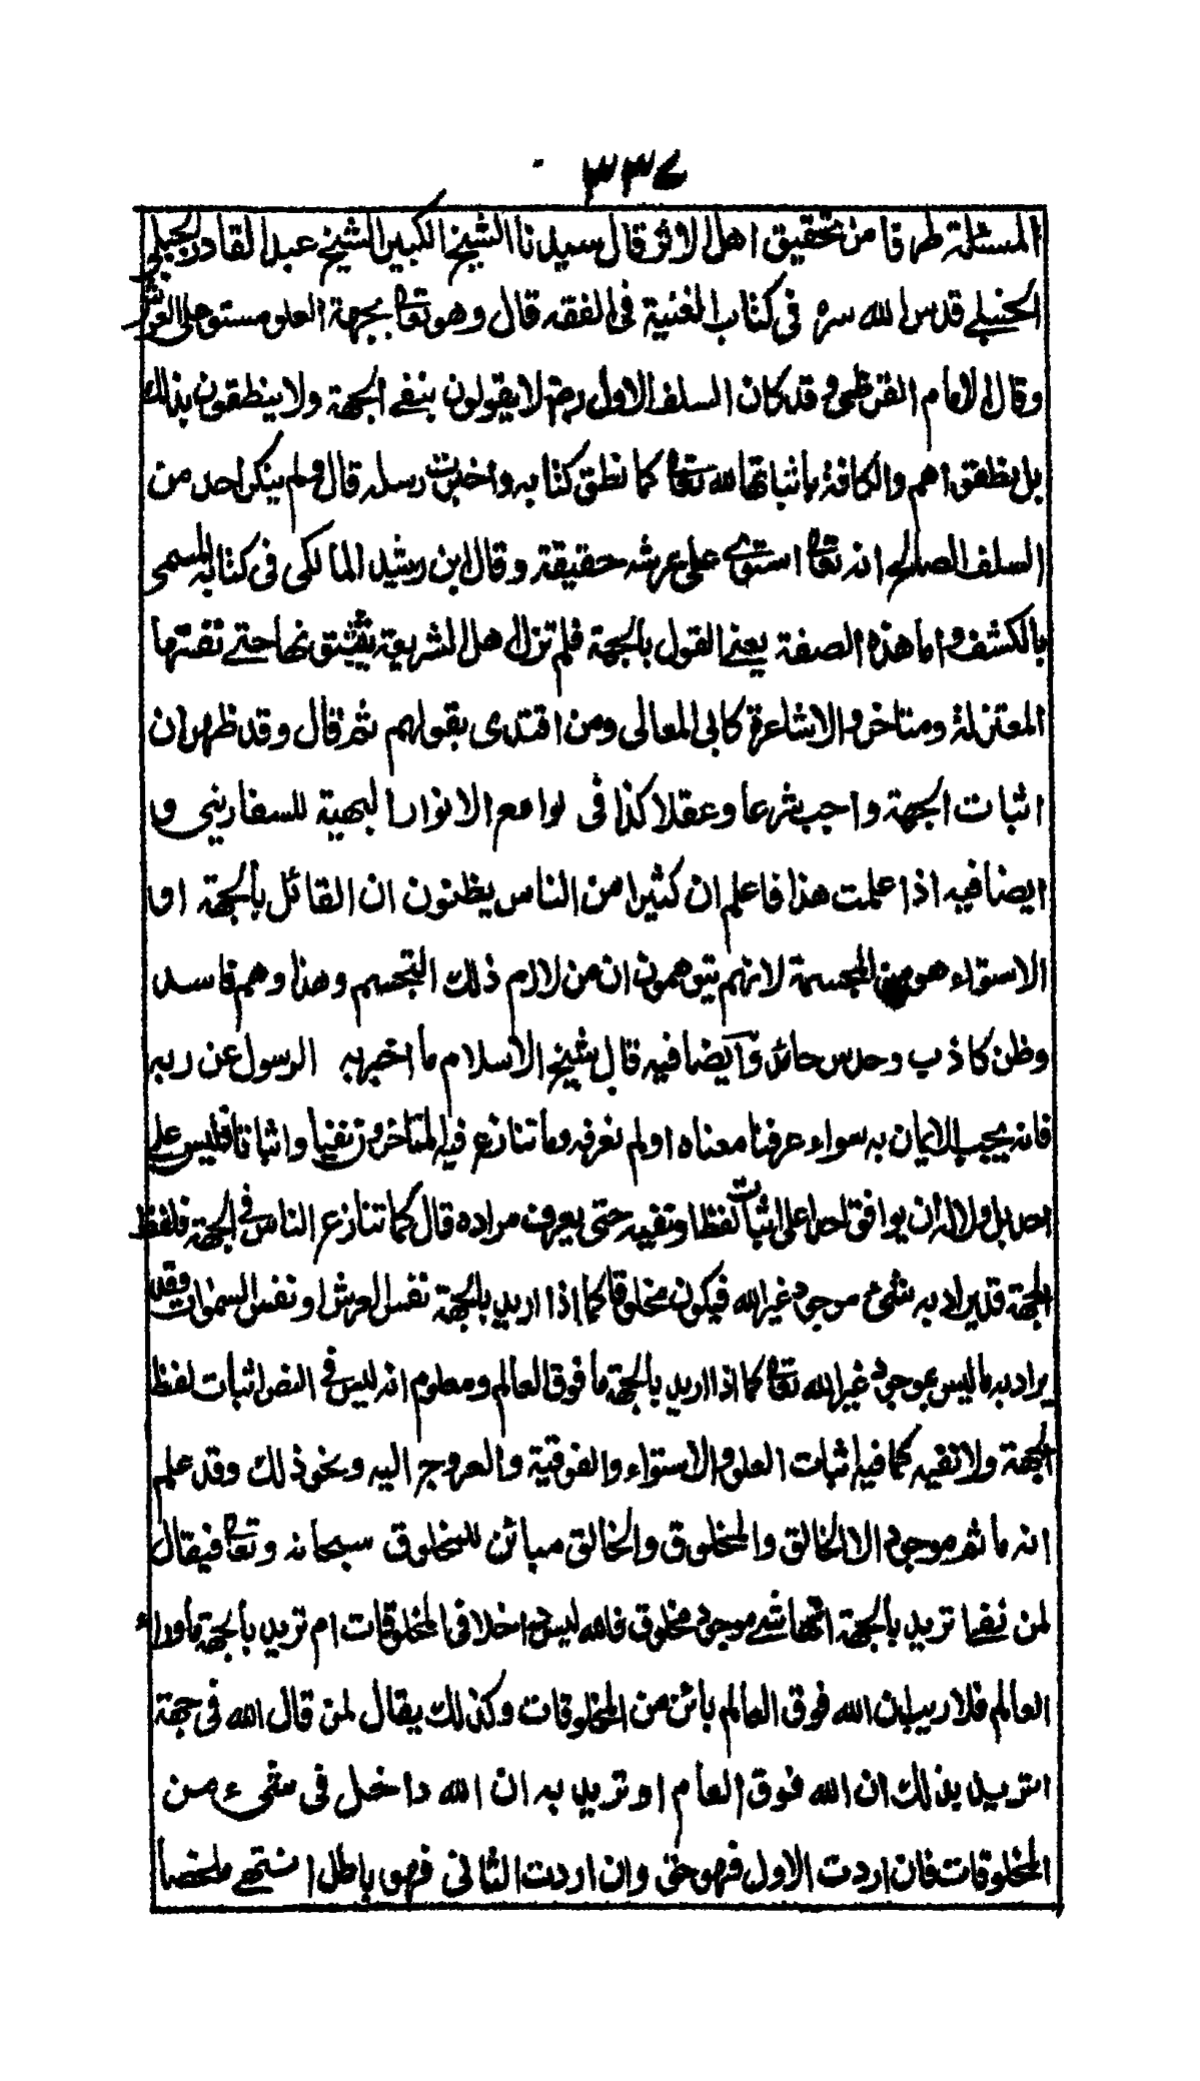 ٣٣٤
المسئلة طرفا من تحقيق اهل الاثر قال سيدنا الشيخ الكبير الشيخ عبد القادر الجيلي
الحنبلے قدس الله سره فى كتاب الغنية فى الفقه قال وهو تعالى بجهة العلو مستو على العرش
وقال الامام القرطبى وقد كان السلف الاول رضـ لا يقولون بنفے الجهة ولا ينطقون بذلك
بل نطقوا هم والكافة باثباتها لله تعالى كما نطق كتابه واخبرت رسله قال ولم ينكر احد من
السلف الصالح انه تعالى استوے على عرشه حقيقة وقال ابن رشيد المالكى فى كتابه المسمى
بالكشف واما هذه الصفة يعنے القول بالجهة فلم تزل اهل الشريعة يثبتونها حتے نفتها
المعتزلة ومتاخرو الاشاعرة كابى المعالى ومن اقتدى بقولهم ثم قال وقد ظهر ان
اثبات الجهة واجب شرعا وعقلا كذا فى لوامع الانوار البهية للسفارينى و
ايضا فيه اذا علمت هذا فاعلم ان كثيرا من الناس يظنون ان القائل بالجهة او
الاستواء هو من المجسمة لانهم يتوهمون ان من لازم ذلك التجسيم وهذا وهم فاسد
وظن كاذب وحدس حائد وايضا فيه قال شيخ الاسلام ما اخبر به الرسول عن ربه
فانه يجب الايمان به سواء عرفنا معناه اولم نعرفه وما تنازع فيه المتاخرون نفيا واثباتا فليس على
احد بل ولا له ان يوافق احدا على اثبات لفظا ونفيه حتى يعرف مراده قال كما تنازع الناس فى الجهة فلفظ
الجهة قد يراد به شئ موجود غير الله فيكون مخلوقا كما اذا اريد بالجهة نفس العرش او نفس السموات وقد
يراد به ما ليس بموجود غير الله تعالى كما اذا اريد بالجهة ما فوق العالم ومعلوم انه ليس فى النص اثبات لفظ
الجهة ولا نفيه كما فيه اثبات العلو والاستواء والفوقية والعروج اليه ونحو ذلك وقد علم
انه ما ثم موجود الا الخالق والمخلوق والخالق مبائن للمخلوق سبحانه وتعالى فيقال
لمن نفيا تريد بالجهة انها شے موجود مخلوق فالله ليس داخلا فى المخلوقات ام تريد بالجهة ما وراء
العالم فلا ريب ان الله فوق العالم بائن من المخلوقات وكذلك يقال لمن قال الله فى جهة
اتريد بذلك ان الله فوق العام او تريد به ان الله داخل فى شىء من
المخلوقات فان اردت الاول فهو حق وان اردت الثانى فهو باطل انتهے ملخصا